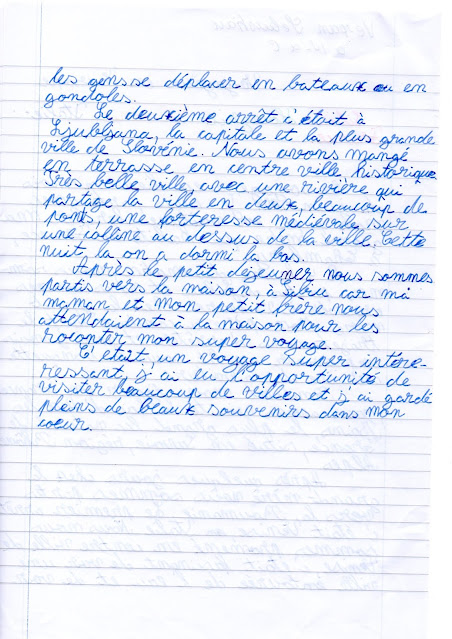 les gens se déplacer en bateaux ou en
gondoles.
Le deuxième arrêt c'était à
Ljubljana, la capitale et la plus grande
ville de Slovénie. Nous avons mangé
en terrasse en centre ville historique
Très belle ville, avec une rivière qui
partage la ville en deux, beaucoup de
ponts, une forteresse médiévale sur
une colline au dessus de la ville. Cette
nuit, la on a dormi la bas.
Après le petit déjeuner nous sommes
partis vers la maison, à Sibiu car ma
maman et mon petit frère nous
attendaient à la maison pour les
raconter mon super voyage.
C'était un voyage super intére-
ressant, j'ai eu l'opportunité de
visiter beaucoup de villes et j'ai gardé
pleins de beaux souvenirs dans mon
coeur.